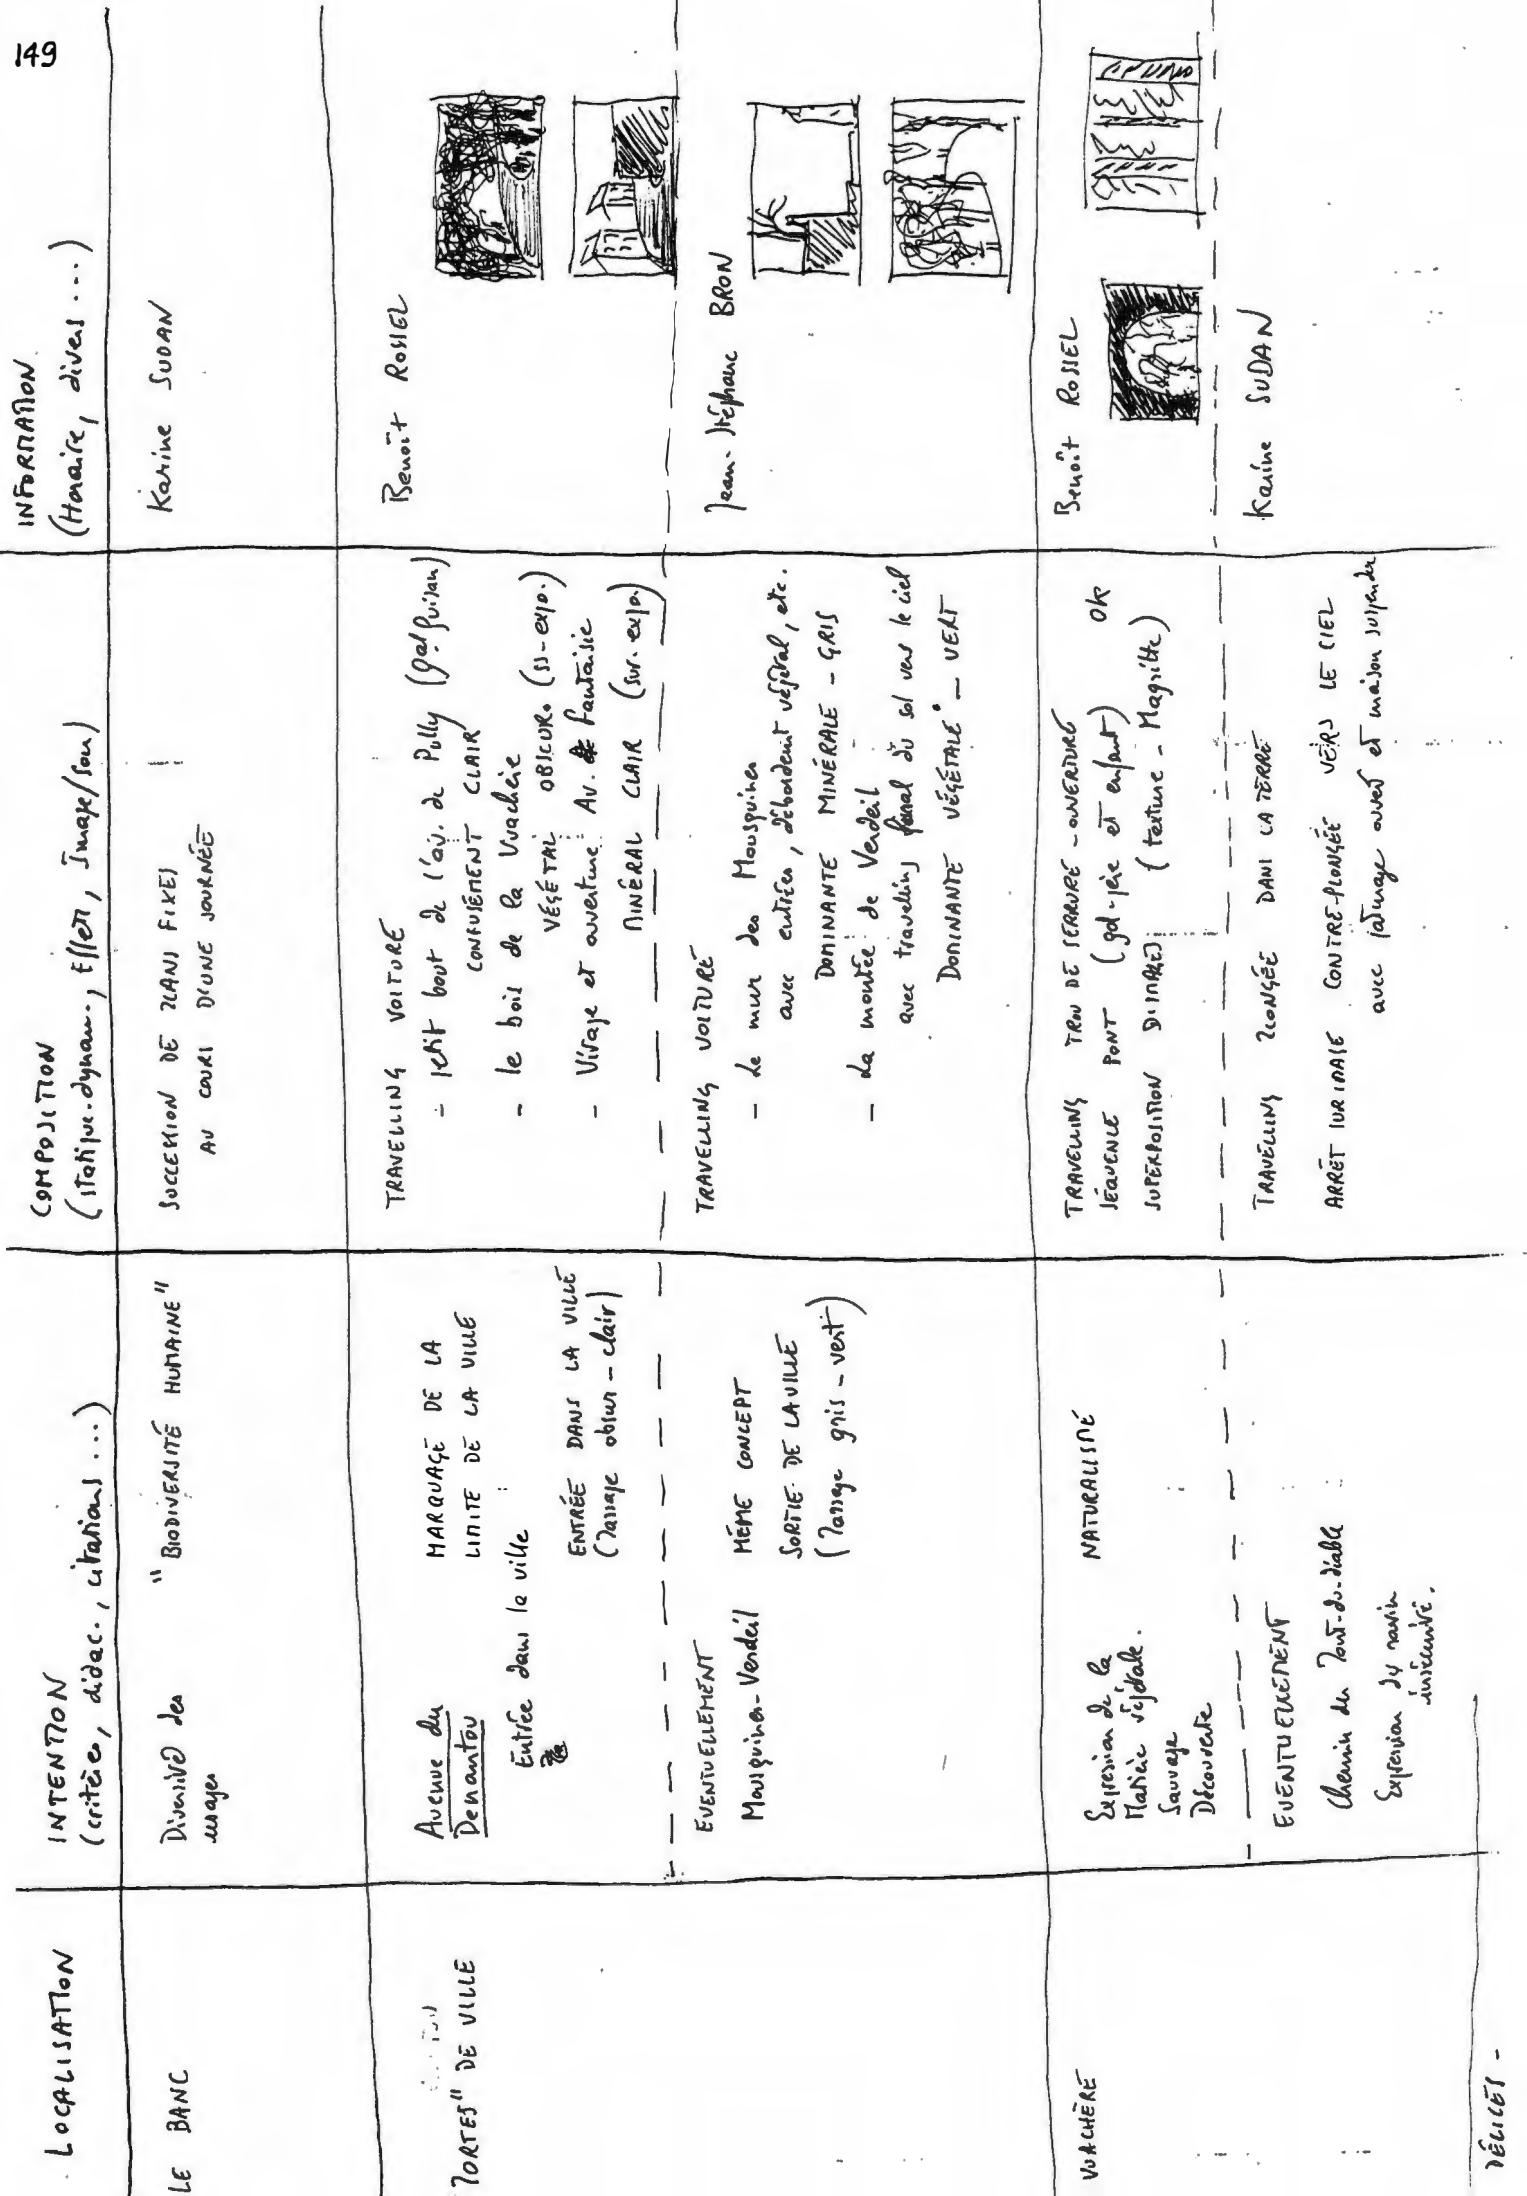 149
LOCALISATION
INTENTION
(critères, didac., citations ...)
COMPOSITION
(statique-dynam., effets, Image/son)
INFORMATION
(Horaire, divers ...)
LE BANC
Diversité des
usages
"BIODIVERSITÉ HUMAINE"
SUCCESSION DE PLANS FIXES
AU COURS D'UNE JOURNÉE
Karine SUDAN
PORTES" DE VILLE
Avenue du
Denantou
Entrée dans la ville
MARQUAGE DE LA
LIMITE DE LA VILLE
ENTRÉE DANS LA VILLE
(Passage obscur - clair)
TRAVELLING VOITURE
- petit bout de l'av. de Pully
CONFUSÉMENT CLAIR
- le bois de la Vuachère
VÉGÉTAL OBSCUR. (ss-expo.)
- Virage et ouverture Av. Fantaisie
MINÉRAL CLAIR (sur.expo.)
Benoît ROSSEL
EVENTUELLEMENT
Mousquines-Verdeil
MÊME CONCEPT
SORTIE DE LA VILLE
(Passage gris - vert)
TRAVELLING VOITURE
- Le mur des Mousquines
avec entrées, débordement végétal, etc.
DOMINANTE MINÉRALE - GRIS
- La montée de Verdeil
avec travelling final du sol vers le ciel
DOMINANTE VÉGÉTALE - VERT
Jean-Stéphane BRON
VUACHÈRE
Expression de la
Matière végétale.
Sauvage
Découverte
NATURALISME
TRAVELLING TROU DE SERRURE - OUVERTURE
SÉQUENCE PONT (gd-père et enfant) OK
SUPERPOSITION D'IMAGES (texture - Magritte)
Benoît ROSSEL
EVENTUELLEMENT
Chemin du Pont-du-diable
Expression du ravin
insécurité.
TRAVELLING PLONGÉE DANS LA TERRE
ARRÊT SUR IMAGE CONTRE-PLONGÉE VERS LE CIEL
avec pâturage ouvert et maison suspendue
Karine SUDAN
DÉLICES -